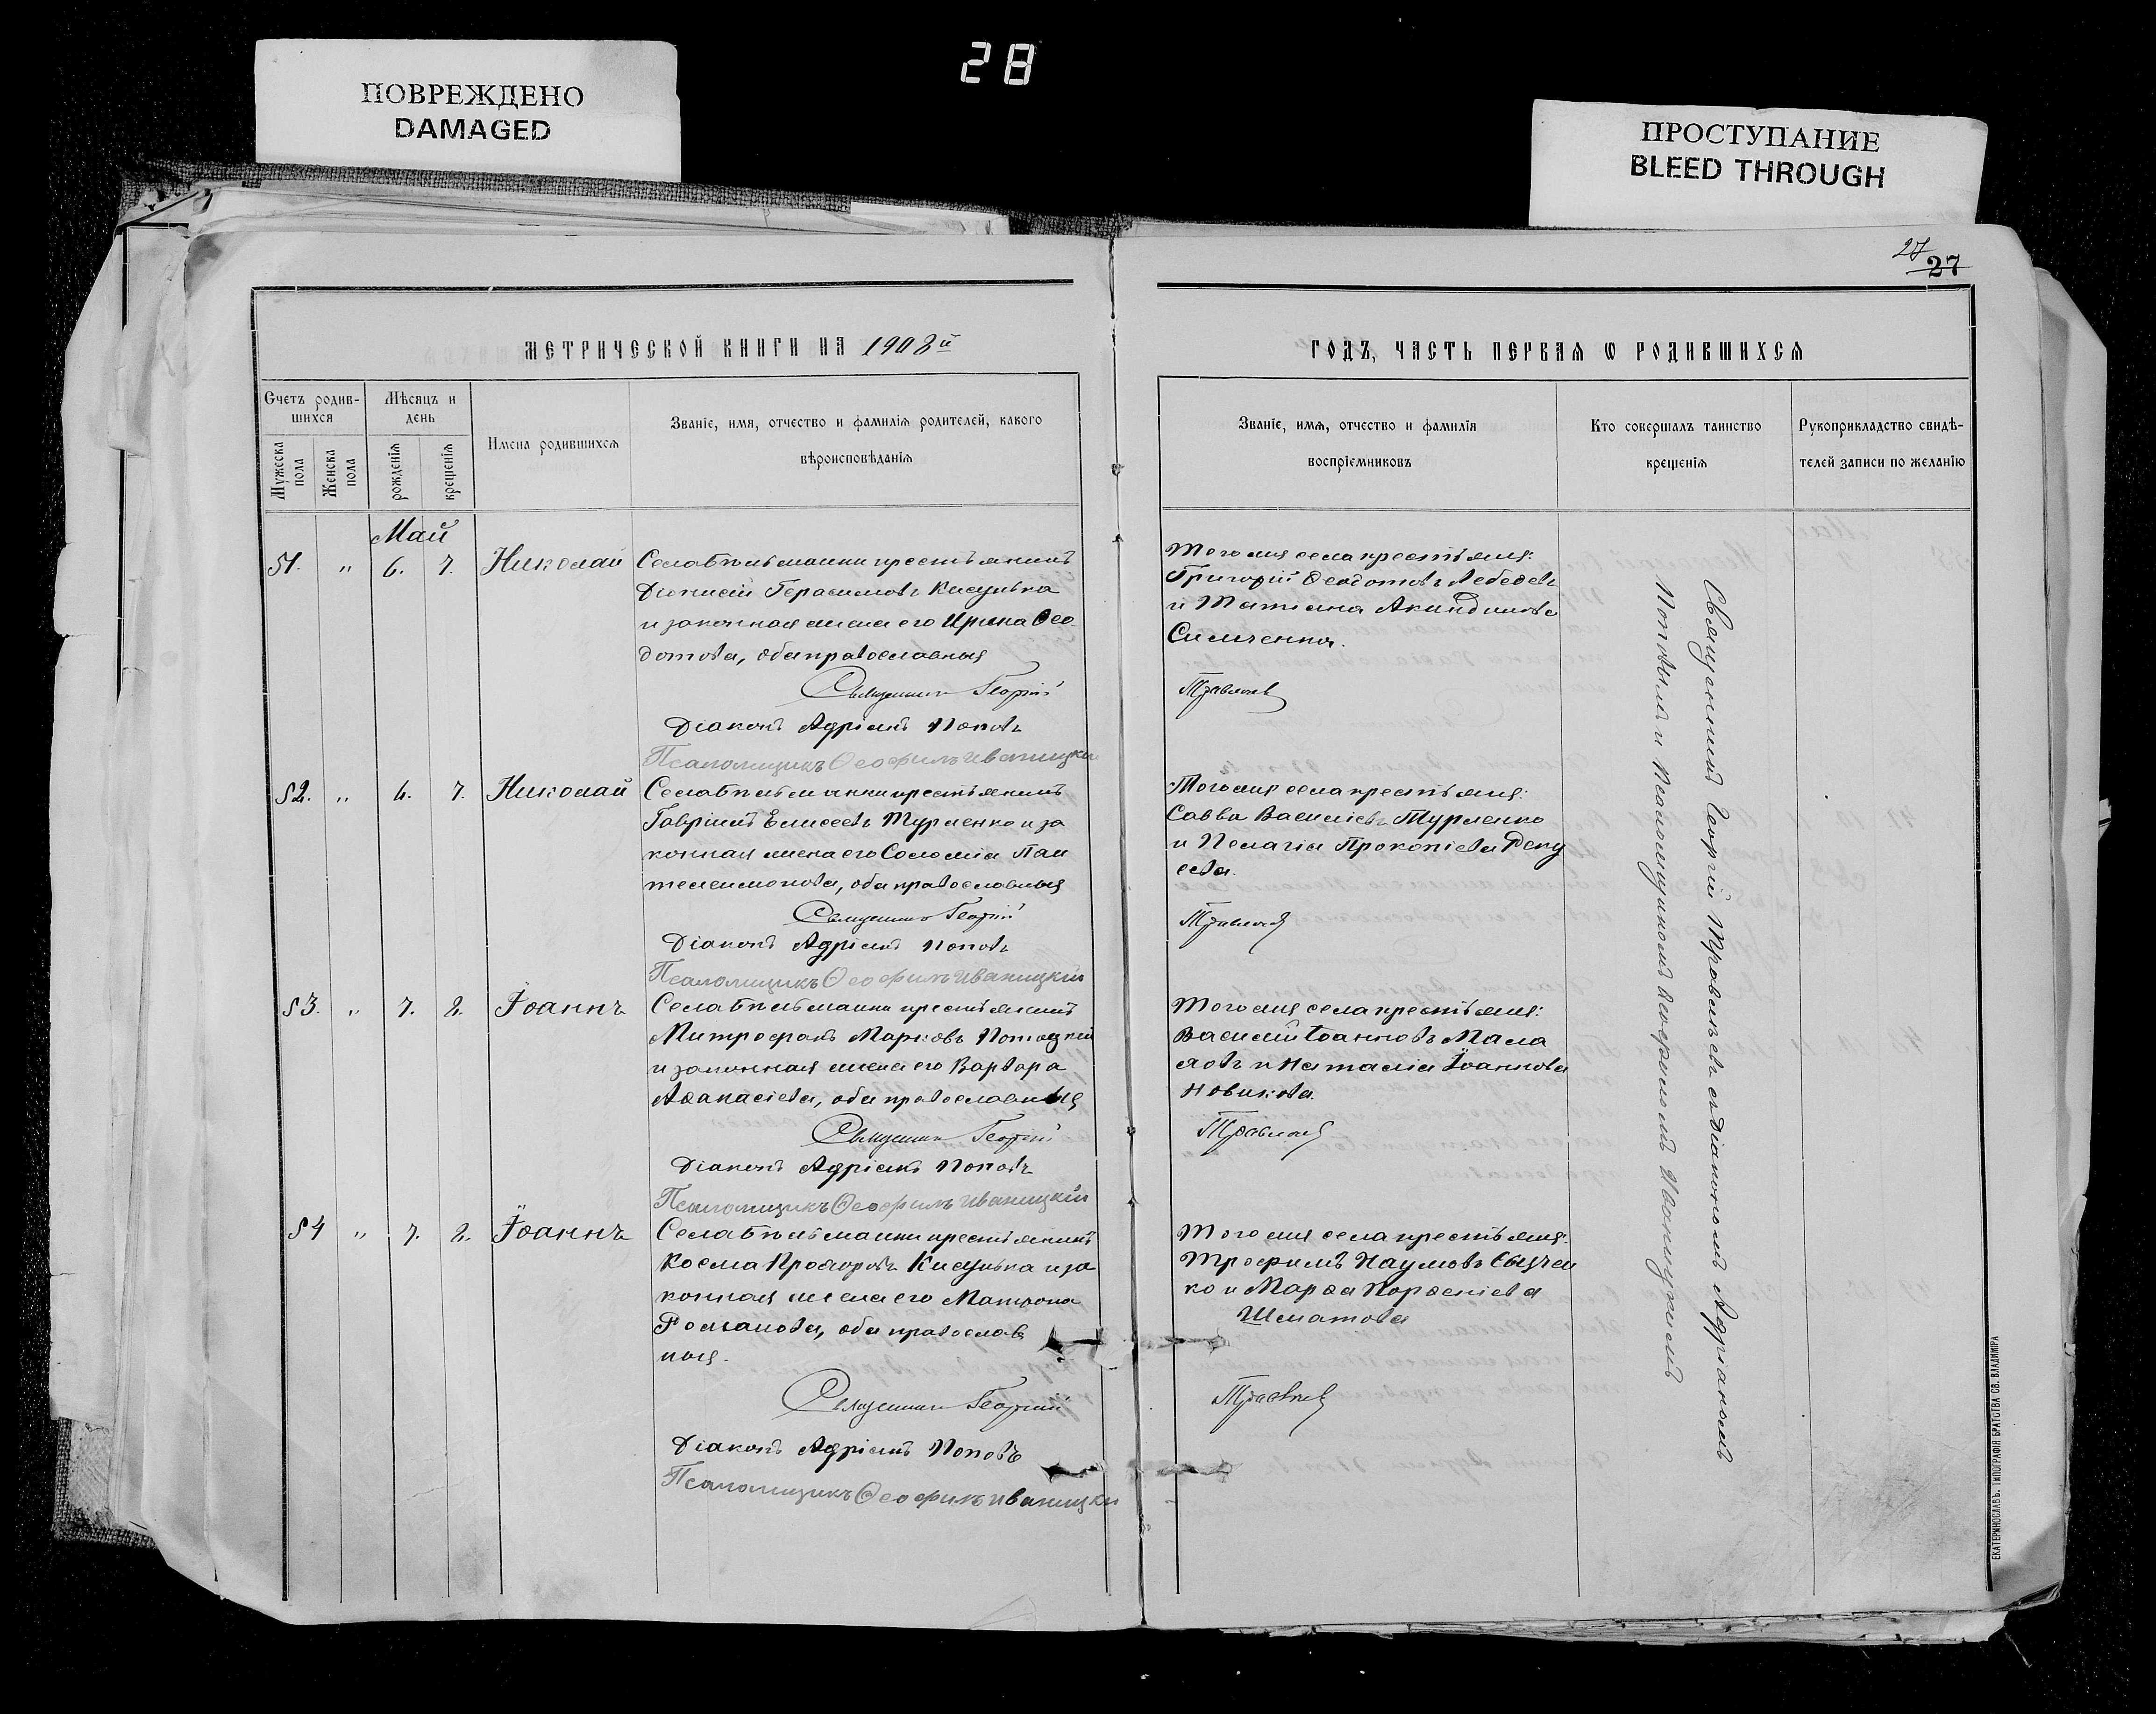 ПОВРЕЖДЕНО
DAMAGED
28
ПРОСТУПАНИЕ
BLEED THROUGH
27
27
МЕТРИЧЕСКОЙ КНИГИ НА 1908й
ГОДЪ, ЧАСТЬ ПЕРВАЯ Ѡ РОДИВШИХСЯ
Счетъ родив-
шихся
Мѣсяцъ и
день
Мужеска
пола
Женска
пола
рожденія
крещенія
Имена родившихся
Званіе, имя, отчество и фамилія родителей, какого
вѣроисповѣданія
Званіе, имя, отчество и фамилія
воспріемниковъ
Кто совершалъ таинство
крещенія
Рукоприкладство свидѣ-
телей записи по желанію
Май
51. " 6. 7. Николай
Села Бѣльманки крестьянинъ
Діонисій Герасимовъ Кисунька
и законная жена его Ирина Ѳео
дотова, оба православныя
Священникъ Георгій
Діаконъ Адріанъ Поповъ
Псаломщикъ Ѳеофилъ Иваницкій
Того же села крестьяне:
Григорій Ѳеодотовъ Лебедевъ
и Татіана Акиндинова
Симченко.
52. " 6. 7. Николай
Села Бѣльманки крестьянинъ
Гавріилъ Елисеевъ Турленко и за
конная жена его Соломія Пан
телеимонова, оба православныя
Священникъ Георгій
Діаконъ Адріанъ Поповъ
Псаломщикъ Ѳеофилъ Иваницкій
Того же села крестьяне:
Савва Василіевъ Турленко
и Пелагія Прокопіева
53. " 7. 8. Іоаннъ
Села Бѣльманки крестьянинъ
Митрофанъ Марковъ Потоцкій
и законная жена его Варвара
Аѳанасіева, оба православныя
Священникъ Георгій
Діаконъ Адріанъ Поповъ
Псаломщикъ Ѳеофилъ Иваницкій
Того же села крестьяне:
Василій Іоанновъ Мала
ховъ и Наталія Іоаннова
Новикова.
54 " 7. 8. Іоаннъ
Села Бѣльманки крестьянинъ
Косма Прохоровъ Кисунька и за
конная жена его Матрона
Романова, оба православ
ныя.
Священникъ Георгій
Діаконъ Адріанъ Поповъ
Псаломщикъ Ѳеофилъ Иваницкій
Того же села крестьяне:
Трофимъ Наумовъ Сычен
ко и Марѳа Парѳеніева
Шматова
Священникъ Георгій съ діакономъ Адріаномъ
Поповымъ и Псаломщикомъ Ѳеофиломъ Иваницкимъ
ЕКАТЕРИНОСЛАВЪ. ТИПОГРАФІЯ БРАТСТВА СВ. ВЛАДИМІРА